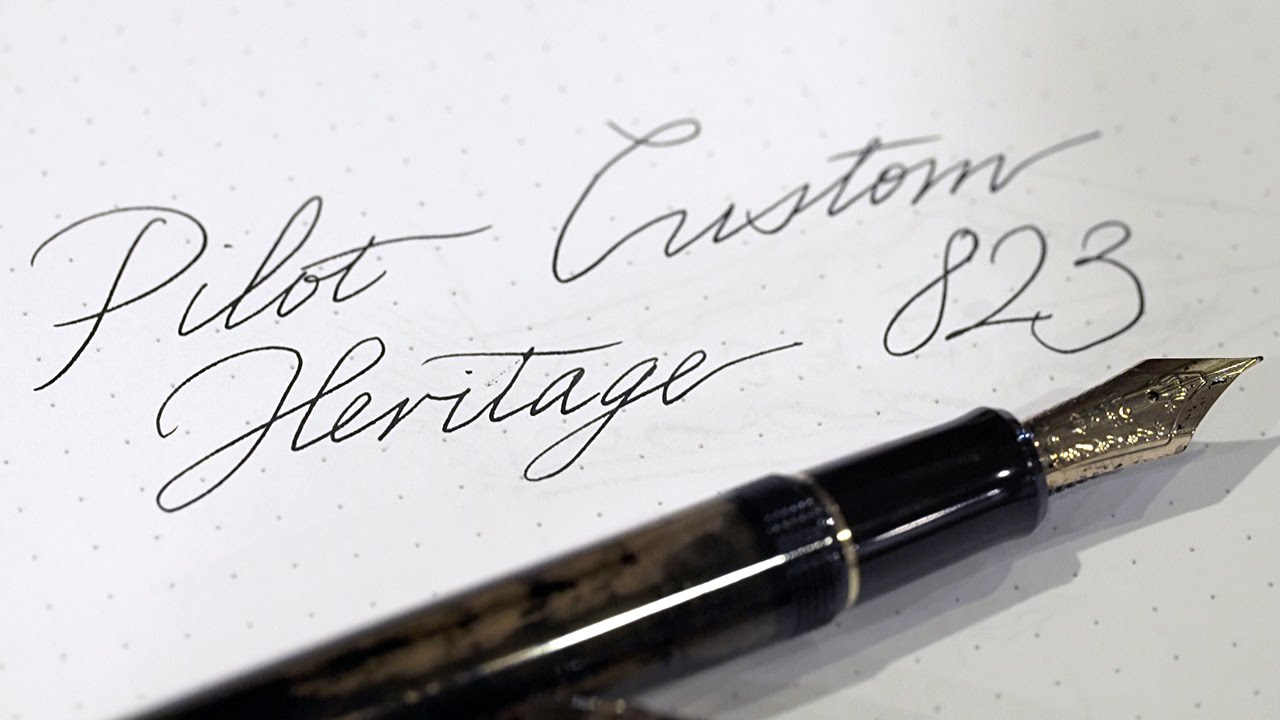 Pilot Custom
Heritage 823